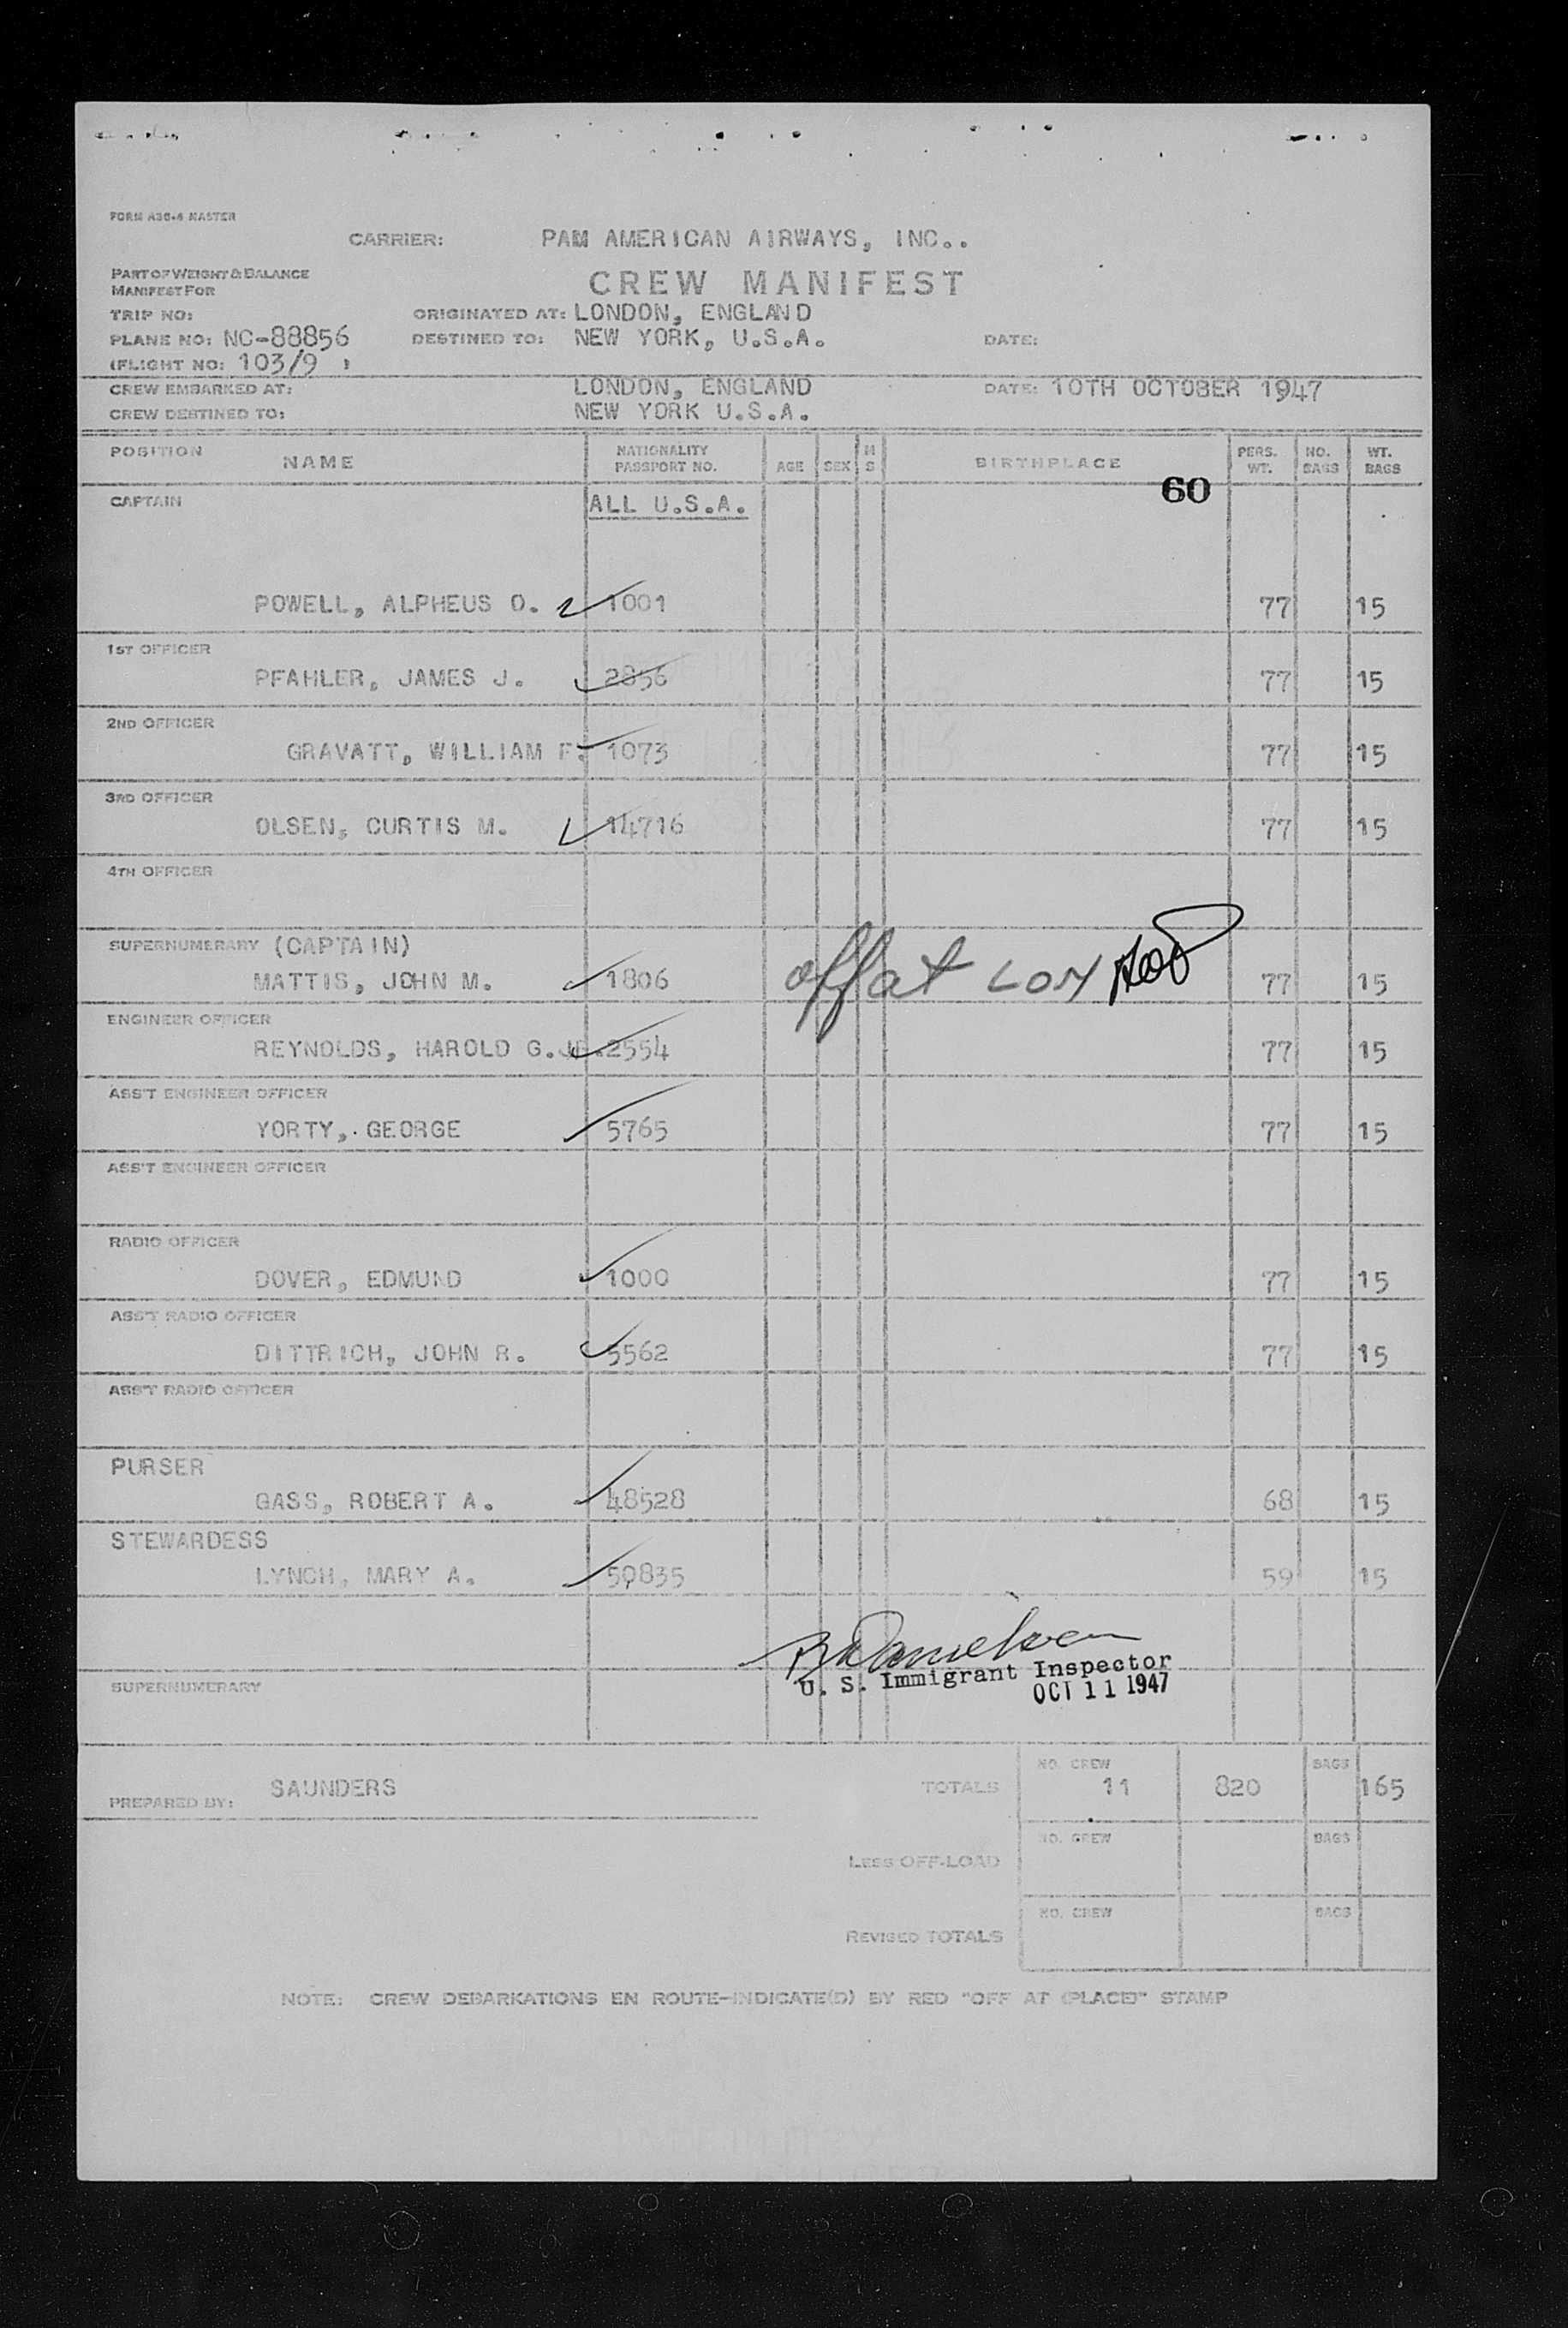 FORM A30-4 MASTER
CARRIER: PAM AMERICAN AIRWAYS, INC..
PART OF WEIGHT & BALANCE
MANIFEST FOR
CREW MANIFEST
TRIP NO: ORIGINATED AT: LONDON, ENGLAND
PLANE NO: NC-88856 DESTINED TO: NEW YORK, U.S.A. DATE:
(FLIGHT NO: 103/9 )
CREW EMBARKED AT: LONDON, ENGLAND DATE: 10TH OCTOBER 1947
CREW DESTINED TO: NEW YORK U.S.A.
POSITION NAME NATIONALITY PASSPORT NO. AGE SEX M S BIRTHPLACE PERS. WT. NO. BAGS WT. BAGS
60
CAPTAIN ALL U.S.A.
POWELL, ALPHEUS O. 1001 77 15
1ST OFFICER
PFAHLER, JAMES J. 2856 77 15
2ND OFFICER
GRAVATT, WILLIAM F. 1073 77 15
3RD OFFICER
OLSEN, CURTIS M. 14716 77 15
4TH OFFICER
SUPERNUMERARY (CAPTAIN)
MATTIS, JOHN M. 1806 off at LON 77 15
ENGINEER OFFICER
REYNOLDS, HAROLD G.JR.2554 77 15
ASS'T ENGINEER OFFICER
YORTY,. GEORGE 5765 77 15
ASS'T ENGINEER OFFICER
RADIO OFFICER
DOVER, EDMUND 1000 77 15
ASS'T RADIO OFFICER
DITTRICH, JOHN R. 5562 77 15
ASS'T RADIO OFFICER
PURSER
GASS, ROBERT A. 48528 68 15
STEWARDESS
LYNCH, MARY A. 50835 59 15
U. S. Immigrant Inspector
OCT 11 1947
SUPERNUMERARY
PREPARED BY: SAUNDERS TOTALS NO. CREW 11 820 BAGS 165
LESS OFF-LOAD NO. CREW BAGS
REVISED TOTALS NO. CREW BAGS
NOTE: CREW DEBARKATIONS EN ROUTE-INDICATE(D) BY RED "OFF AT (PLACE)" STAMP